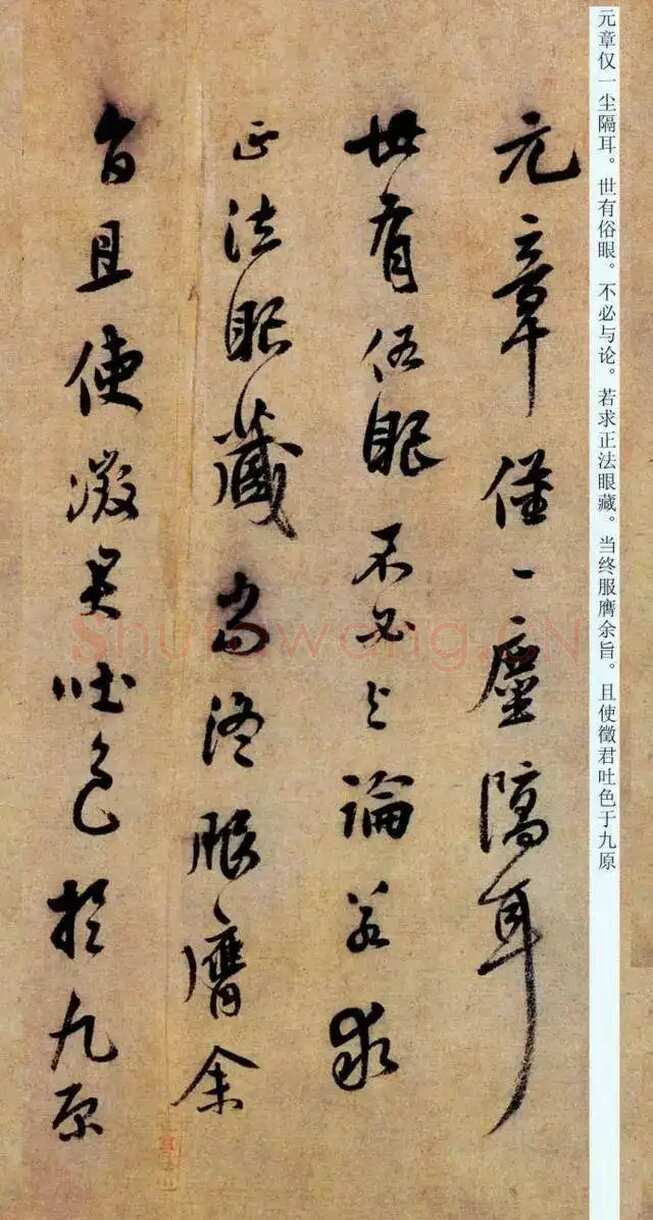 元章仅一尘隔耳。世有俗眼。不必与论。若求正法眼藏。当终服膺余旨。且使徵君吐色于九原
元章僅一塵隔耳
世有俗眼不必与論若求
正法眼藏當終服膺余
旨且使徵君吐色於九原